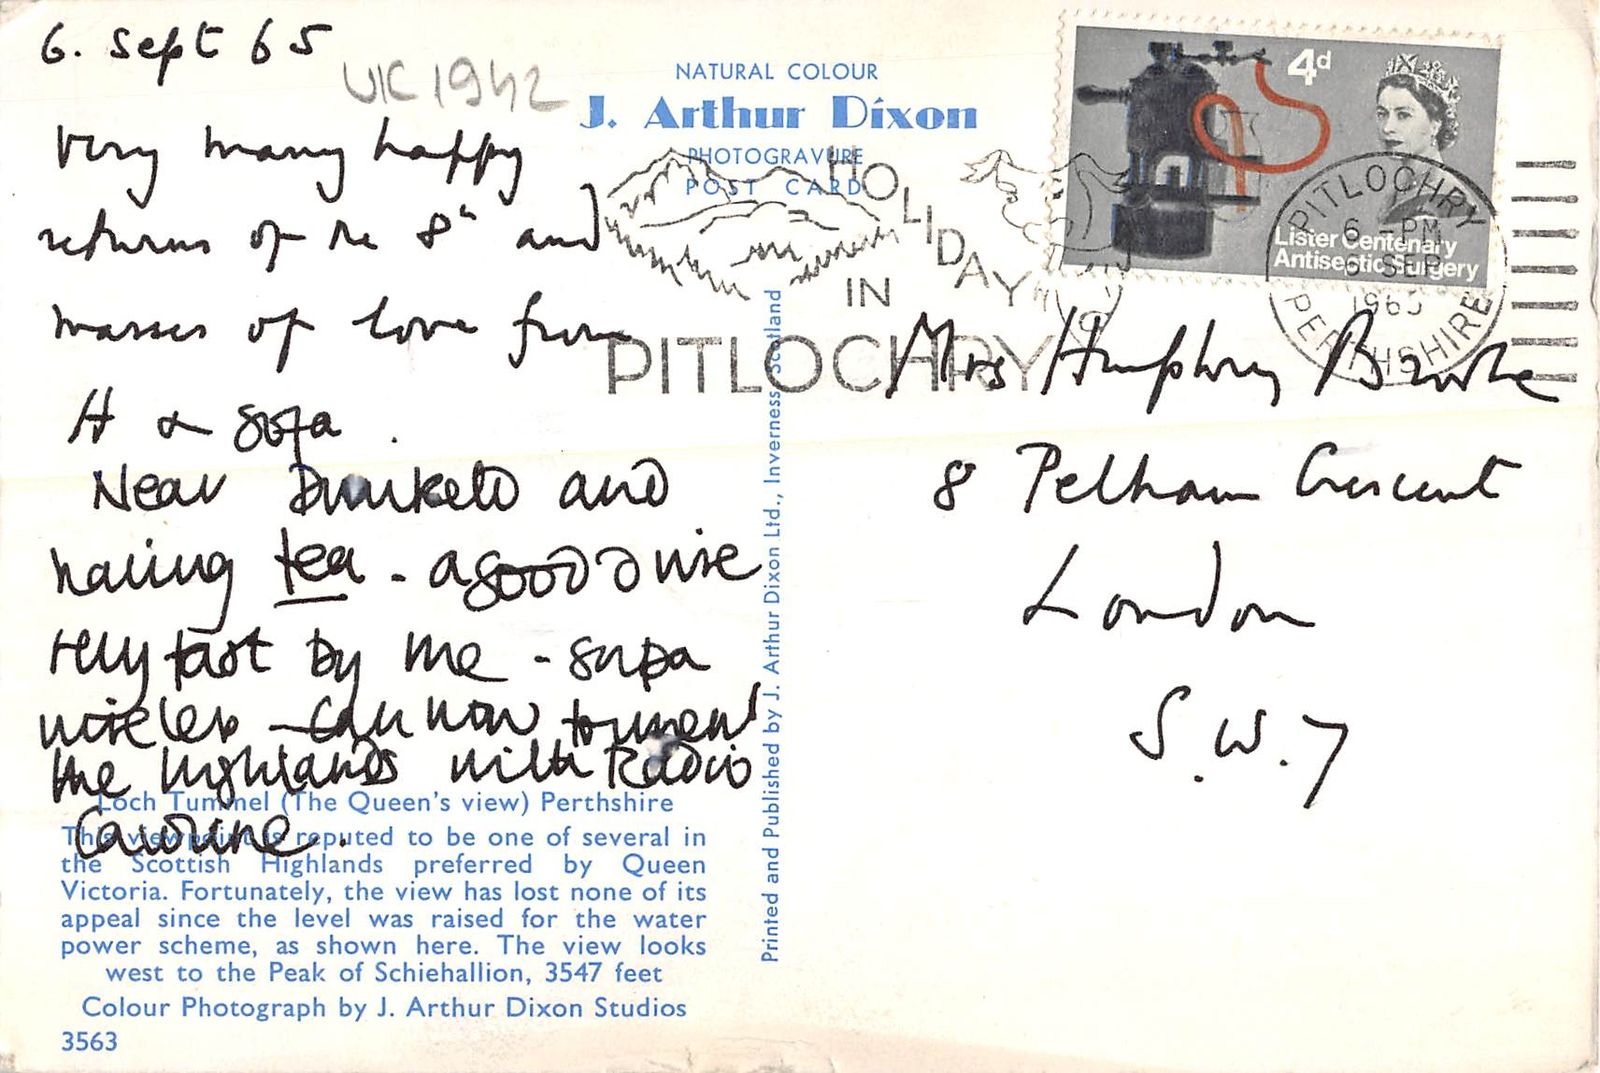 6. Sept 65
UK 1942
NATURAL COLOUR
J. Arthur Dixon
PHOTOGRAVURE
POST CARD
Very many happy
returns of the 8th and
masses of love from
H &
Near Dunkeld and
having tea - a good drive
very fast by me - supa
wireless - can now torment
the highlands with Radio
Caroline.
4d
Lister Centenary
Antiseptic Surgery
HOLIDAY
IN
PITLOCHRY
PITLOCHRY
6 - PM
6 SEP
1965
PERTHSHIRE
Mrs Humphrey Brooke
8 Pelham Crescent
London
S.W.7
Printed and Published by J. Arthur Dixon Ltd., Inverness, Scotland
Loch Tummel (The Queen's view) Perthshire
This viewpoint is reputed to be one of several in
the Scottish Highlands preferred by Queen
Victoria. Fortunately, the view has lost none of its
appeal since the level was raised for the water
power scheme, as shown here. The view looks
west to the Peak of Schiehallion, 3547 feet
Colour Photograph by J. Arthur Dixon Studios
3563